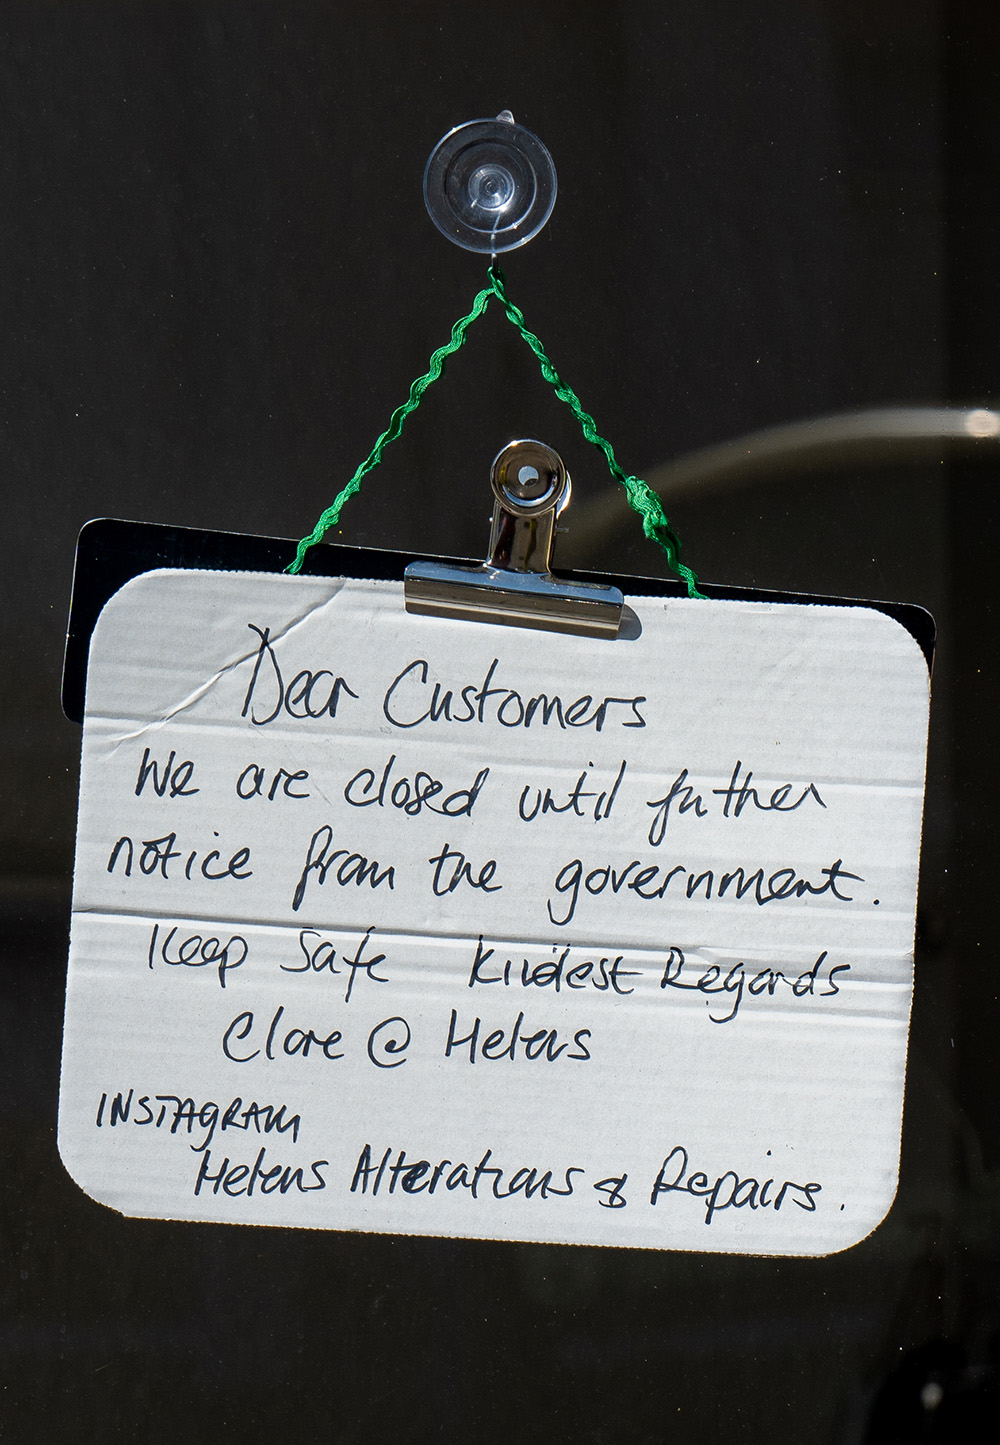 Dear Customers
We are closed until futher
notice from the government.
Keep Safe Kindest Regards
Clare @ Helens
INSTAGRAM
Helens Alterations & Repairs.